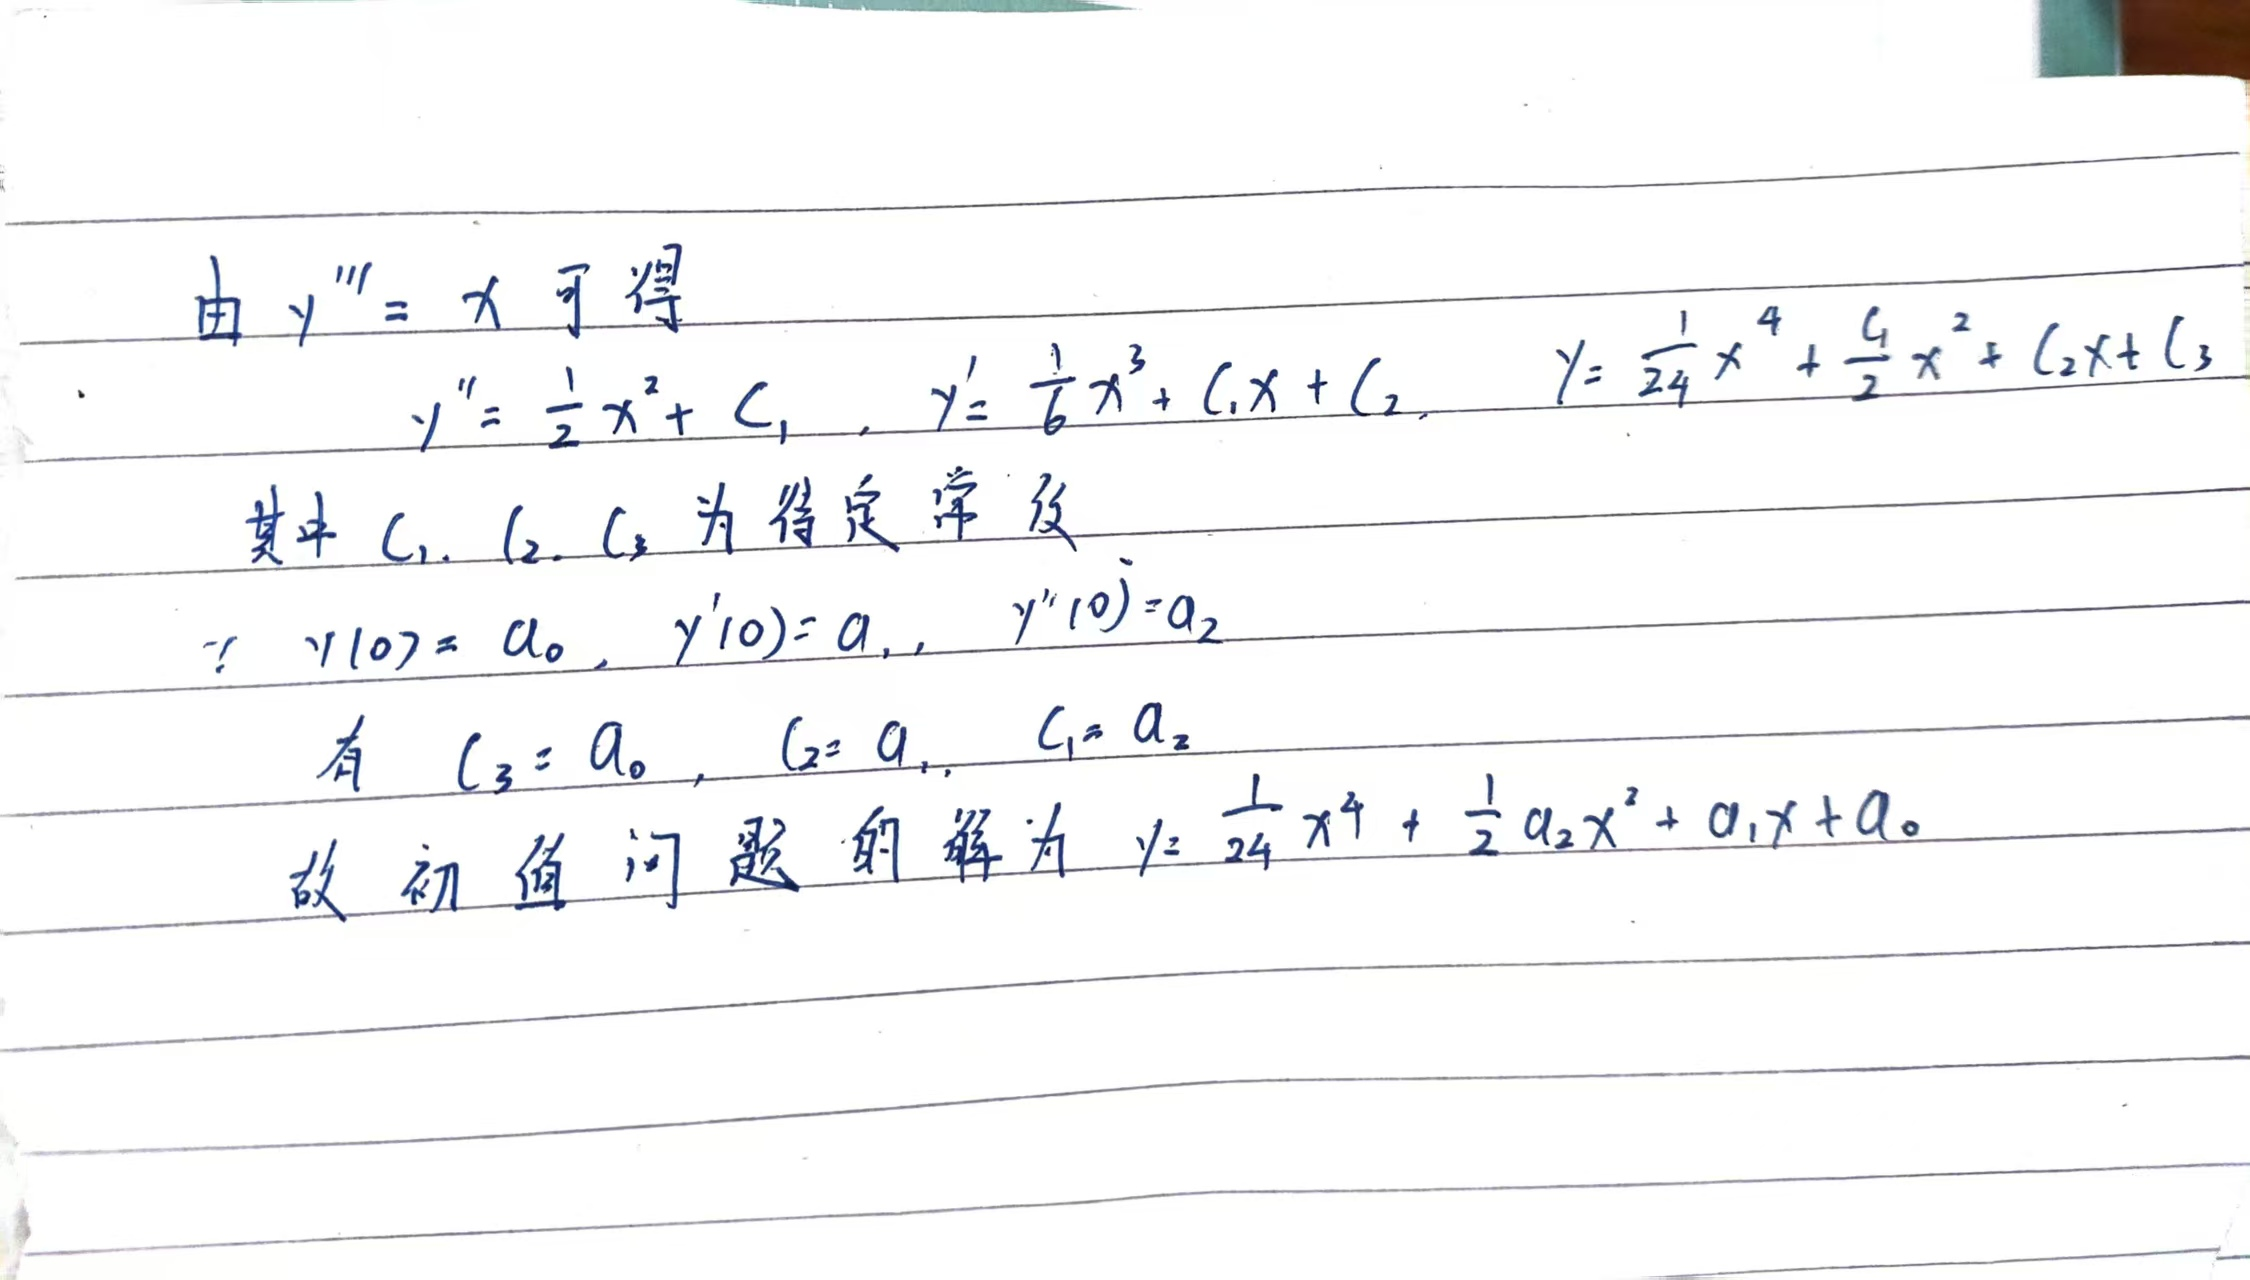 由 y''' = x 可得
y'' = 1/2 x² + C₁, y' = 1/6 x³ + C₁x + C₂, y = 1/24 x⁴ + C₁/2 x² + C₂x + C₃
其中 C₁. C₂. C₃ 为待定常数
∵ y(0) = a₀, y'(0) = a₁, y''(0) = a₂
有 C₃ = a₀, C₂ = a₁, C₁ = a₂
故初值问题的解为 y = 1/24 x⁴ + 1/2 a₂x² + a₁x + a₀